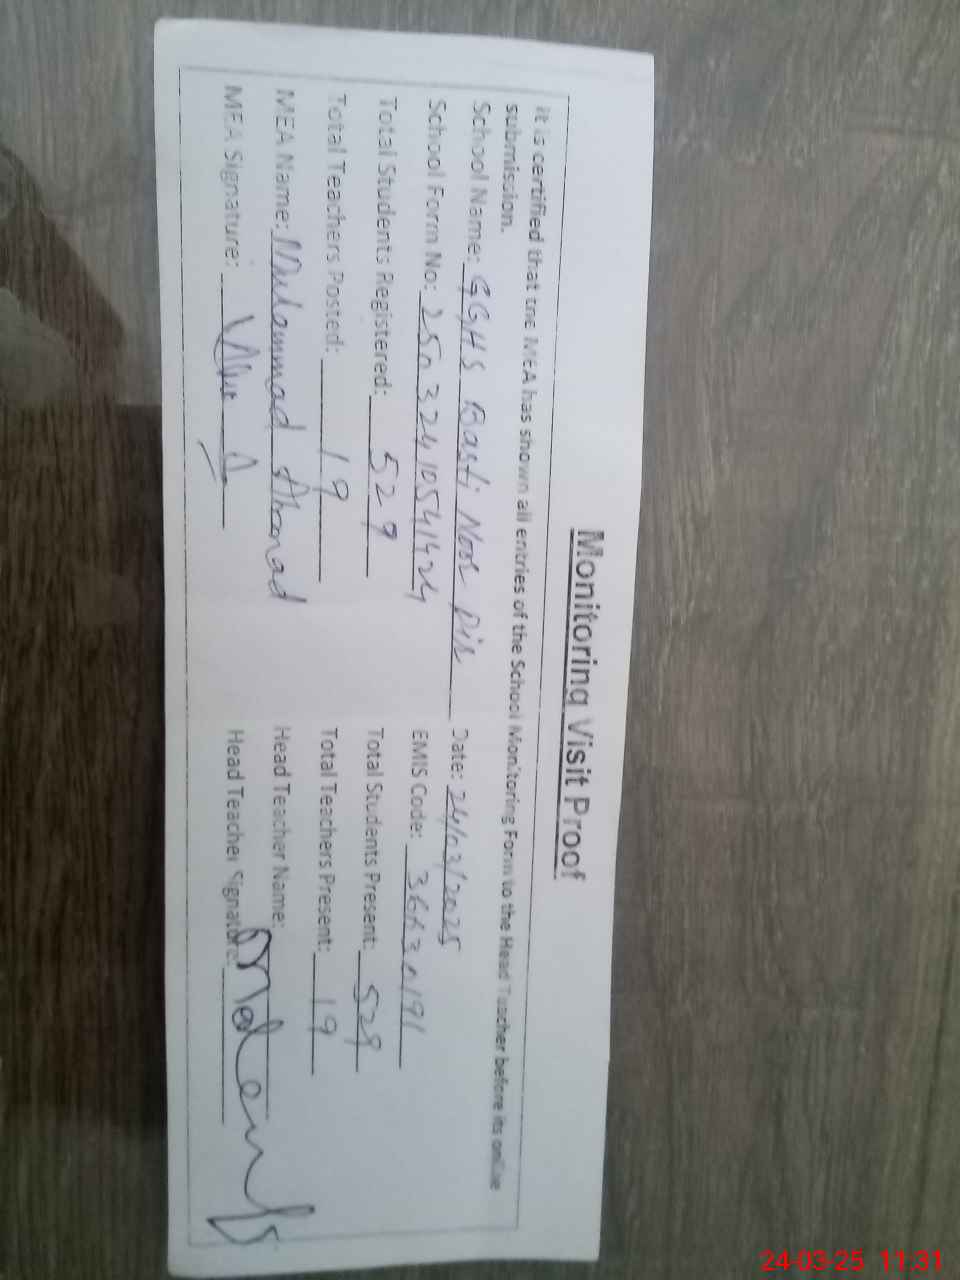 Monitoring Visit Proof
It is certified that the MEA has shown all entries of the School Monitoring Form to the Head Teacher before its online
submission.
School Name: GGHS Basti Noor Din Date: 24/03/2025
School Form No: 25032410541424 EMIS Code: 36630191
Total Students Registered: 529 Total Students Present: 529
Total Teachers Posted: 19 Total Teachers Present: 19
MEA Name: Muhammad Ahmad Head Teacher Name:
MEA Signature: Head Teacher Signature:
24-03-25 11:31